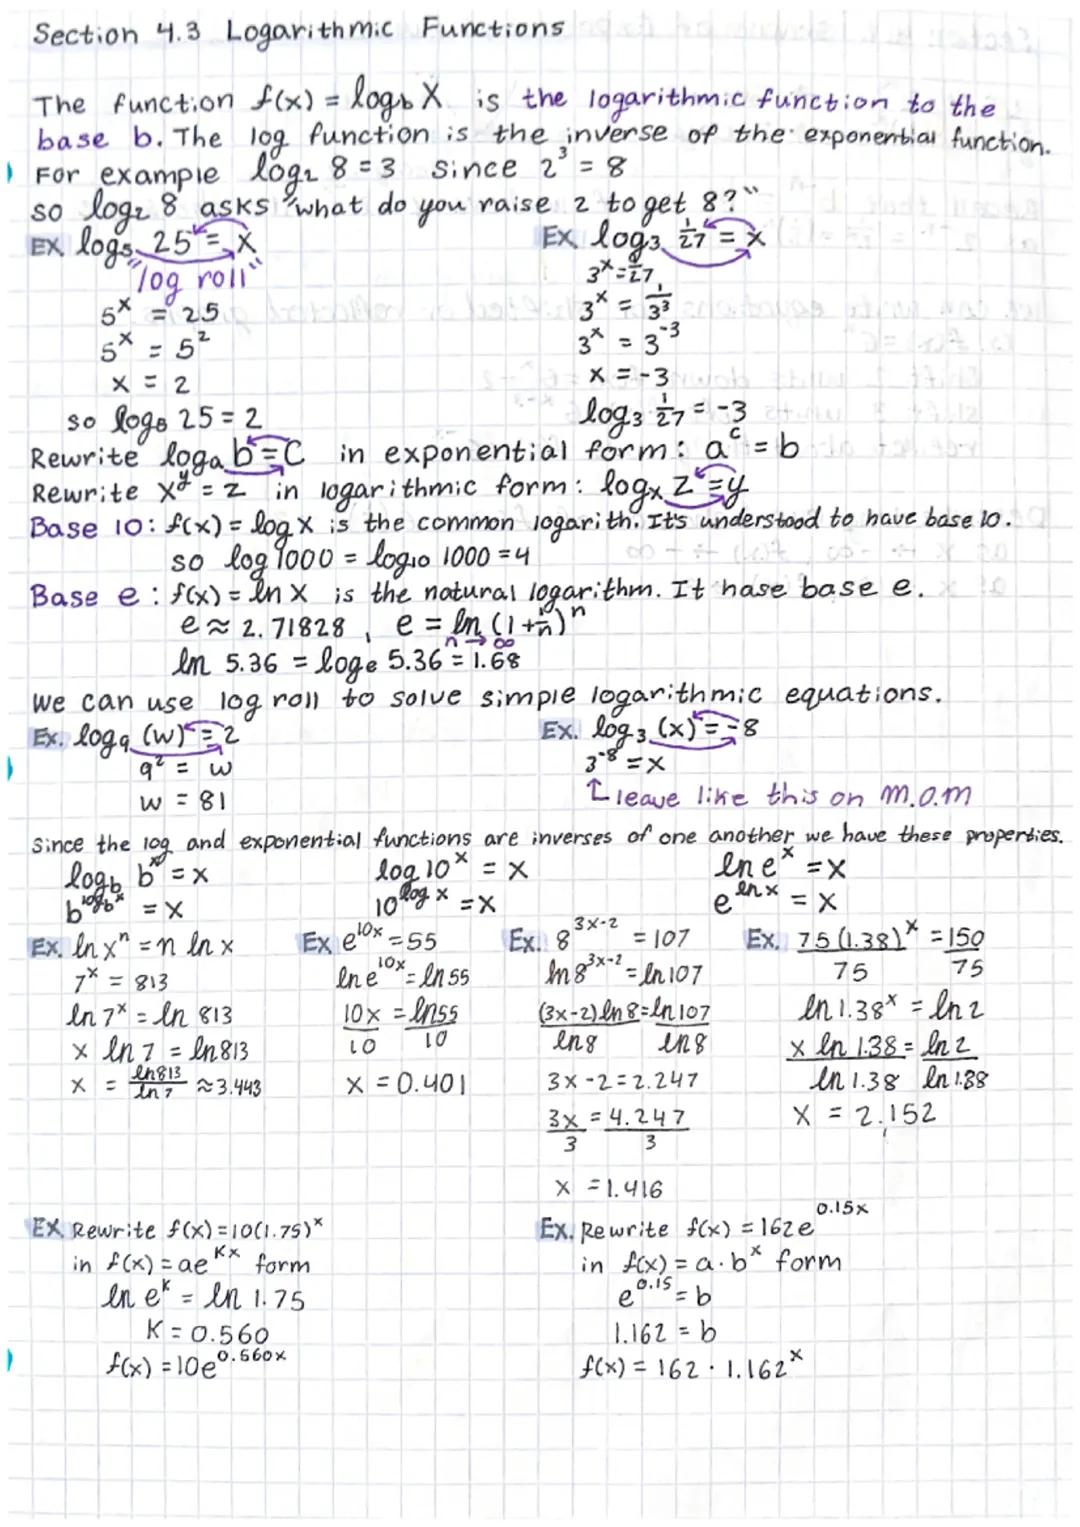 Section 4.3 Logarithmic Functions
The function f(x) = log_b X is the logarithmic function to the
base b. The log function is the inverse of the exponential function.
For example log_2 8 = 3 since 2^3 = 8
so log_2 8 asks "what do you raise 2 to get 8?"
EX log_5 25 = X
"log roll"
5^x = 25
5^x = 5^2
x = 2
so log_5 25 = 2
EX log_3 1/27 = x
3^x = 1/27
3^x = 1/3^3
3^x = 3^-3
x = -3
log_3 1/27 = -3
Rewrite log_a b = C in exponential form: a^c = b
Rewrite x^y = z in logarithmic form: log_x z = y
Base 10: f(x) = log x is the common logarith. It's understood to have base 10.
so log 1000 = log_10 1000 = 4
Base e: f(x) = ln x is the natural logarithm. It hase base e.
e ≈ 2.71828, e = ln_{n→∞} (1 + 1/n)^n
ln 5.36 = log_e 5.36 = 1.68
We can use log roll to solve simple logarithmic equations.
Ex. log_9 (w) = 2
9^2 = w
w = 81
Ex. log_3 (x) = -8
3^-8 = x
↑ leave like this on M.O.M
Since the log and exponential functions are inverses of one another we have these properties.
log_b b^x = x
b^{log_b x} = x
log 10^x = x
10^{log x} = x
ln e^x = x
e^{ln x} = x
Ex. ln x^n = n ln x
7^x = 813
ln 7^x = ln 813
x ln 7 = ln 813
x = ln 813 / ln 7 ≈ 3.443
Ex e^{10x} = 55
ln e^{10x} = ln 55
10x / 10 = ln 55 / 10
x = 0.401
Ex. 8^{3x-2} = 107
ln 8^{3x-2} = ln 107
(3x-2) ln 8 / ln 8 = ln 107 / ln 8
3x - 2 = 2.247
3x / 3 = 4.247 / 3
x = 1.416
Ex. 75(1.38)^x / 75 = 150 / 75
ln 1.38^x = ln 2
x ln 1.38 / ln 1.38 = ln 2 / ln 1.38
x = 2.152
EX Rewrite f(x) = 10(1.75)^x
in f(x) = ae^{kx} form
ln e^k = ln 1.75
K = 0.560
f(x) = 10e^{0.560x}
Ex. Rewrite f(x) = 162e^{0.15x}
in f(x) = a·b^x form
e^{0.15} = b
1.162 = b
f(x) = 162 · 1.162^x